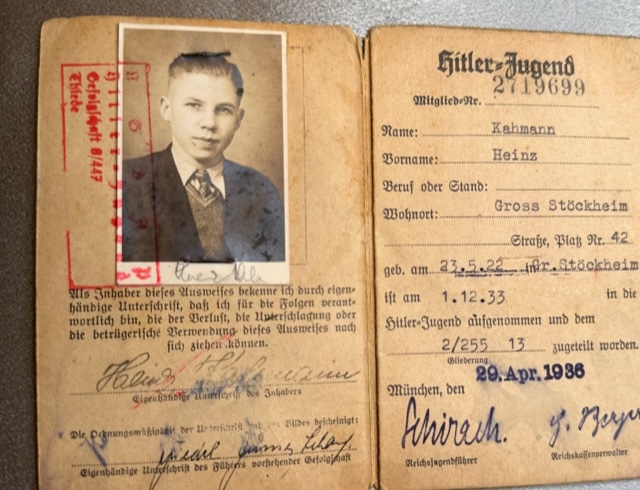 Gefolgschaft 8/447
Thiede
Als Inhaber dieses Ausweises bekenne ich durch eigen-
händige Unterschrift, daß ich für die Folgen verant-
wortlich bin, die der Verlust, die Unterschlagung oder
die betrügerische Verwendung dieses Ausweises nach
sich ziehen können.
Heinz Kahmann
Eigenhändige Unterschrift des Inhabers
Die Ordnungsmäßigkeit der Unterschrift des Bildes bescheinigt:
Eigenhändige Unterschrift des Führers vorstehender Gefolgschaft
Hitler-Jugend
Mitglied-Nr. 2719699
Name: Kahmann
Vorname: Heinz
Beruf oder Stand:
Wohnort: Gross Stöckheim
Straße, Platz Nr. 42
geb. am 23.5.22 in Gr.Stöckheim
ist am 1.12.33 in die
Hitler-Jugend aufgenommen und dem
2/255 13 zugeteilt worden.
Gliederung
München, den 29. Apr. 1936
Schirach.
Reichsjugendführer Reichskassenverwalter